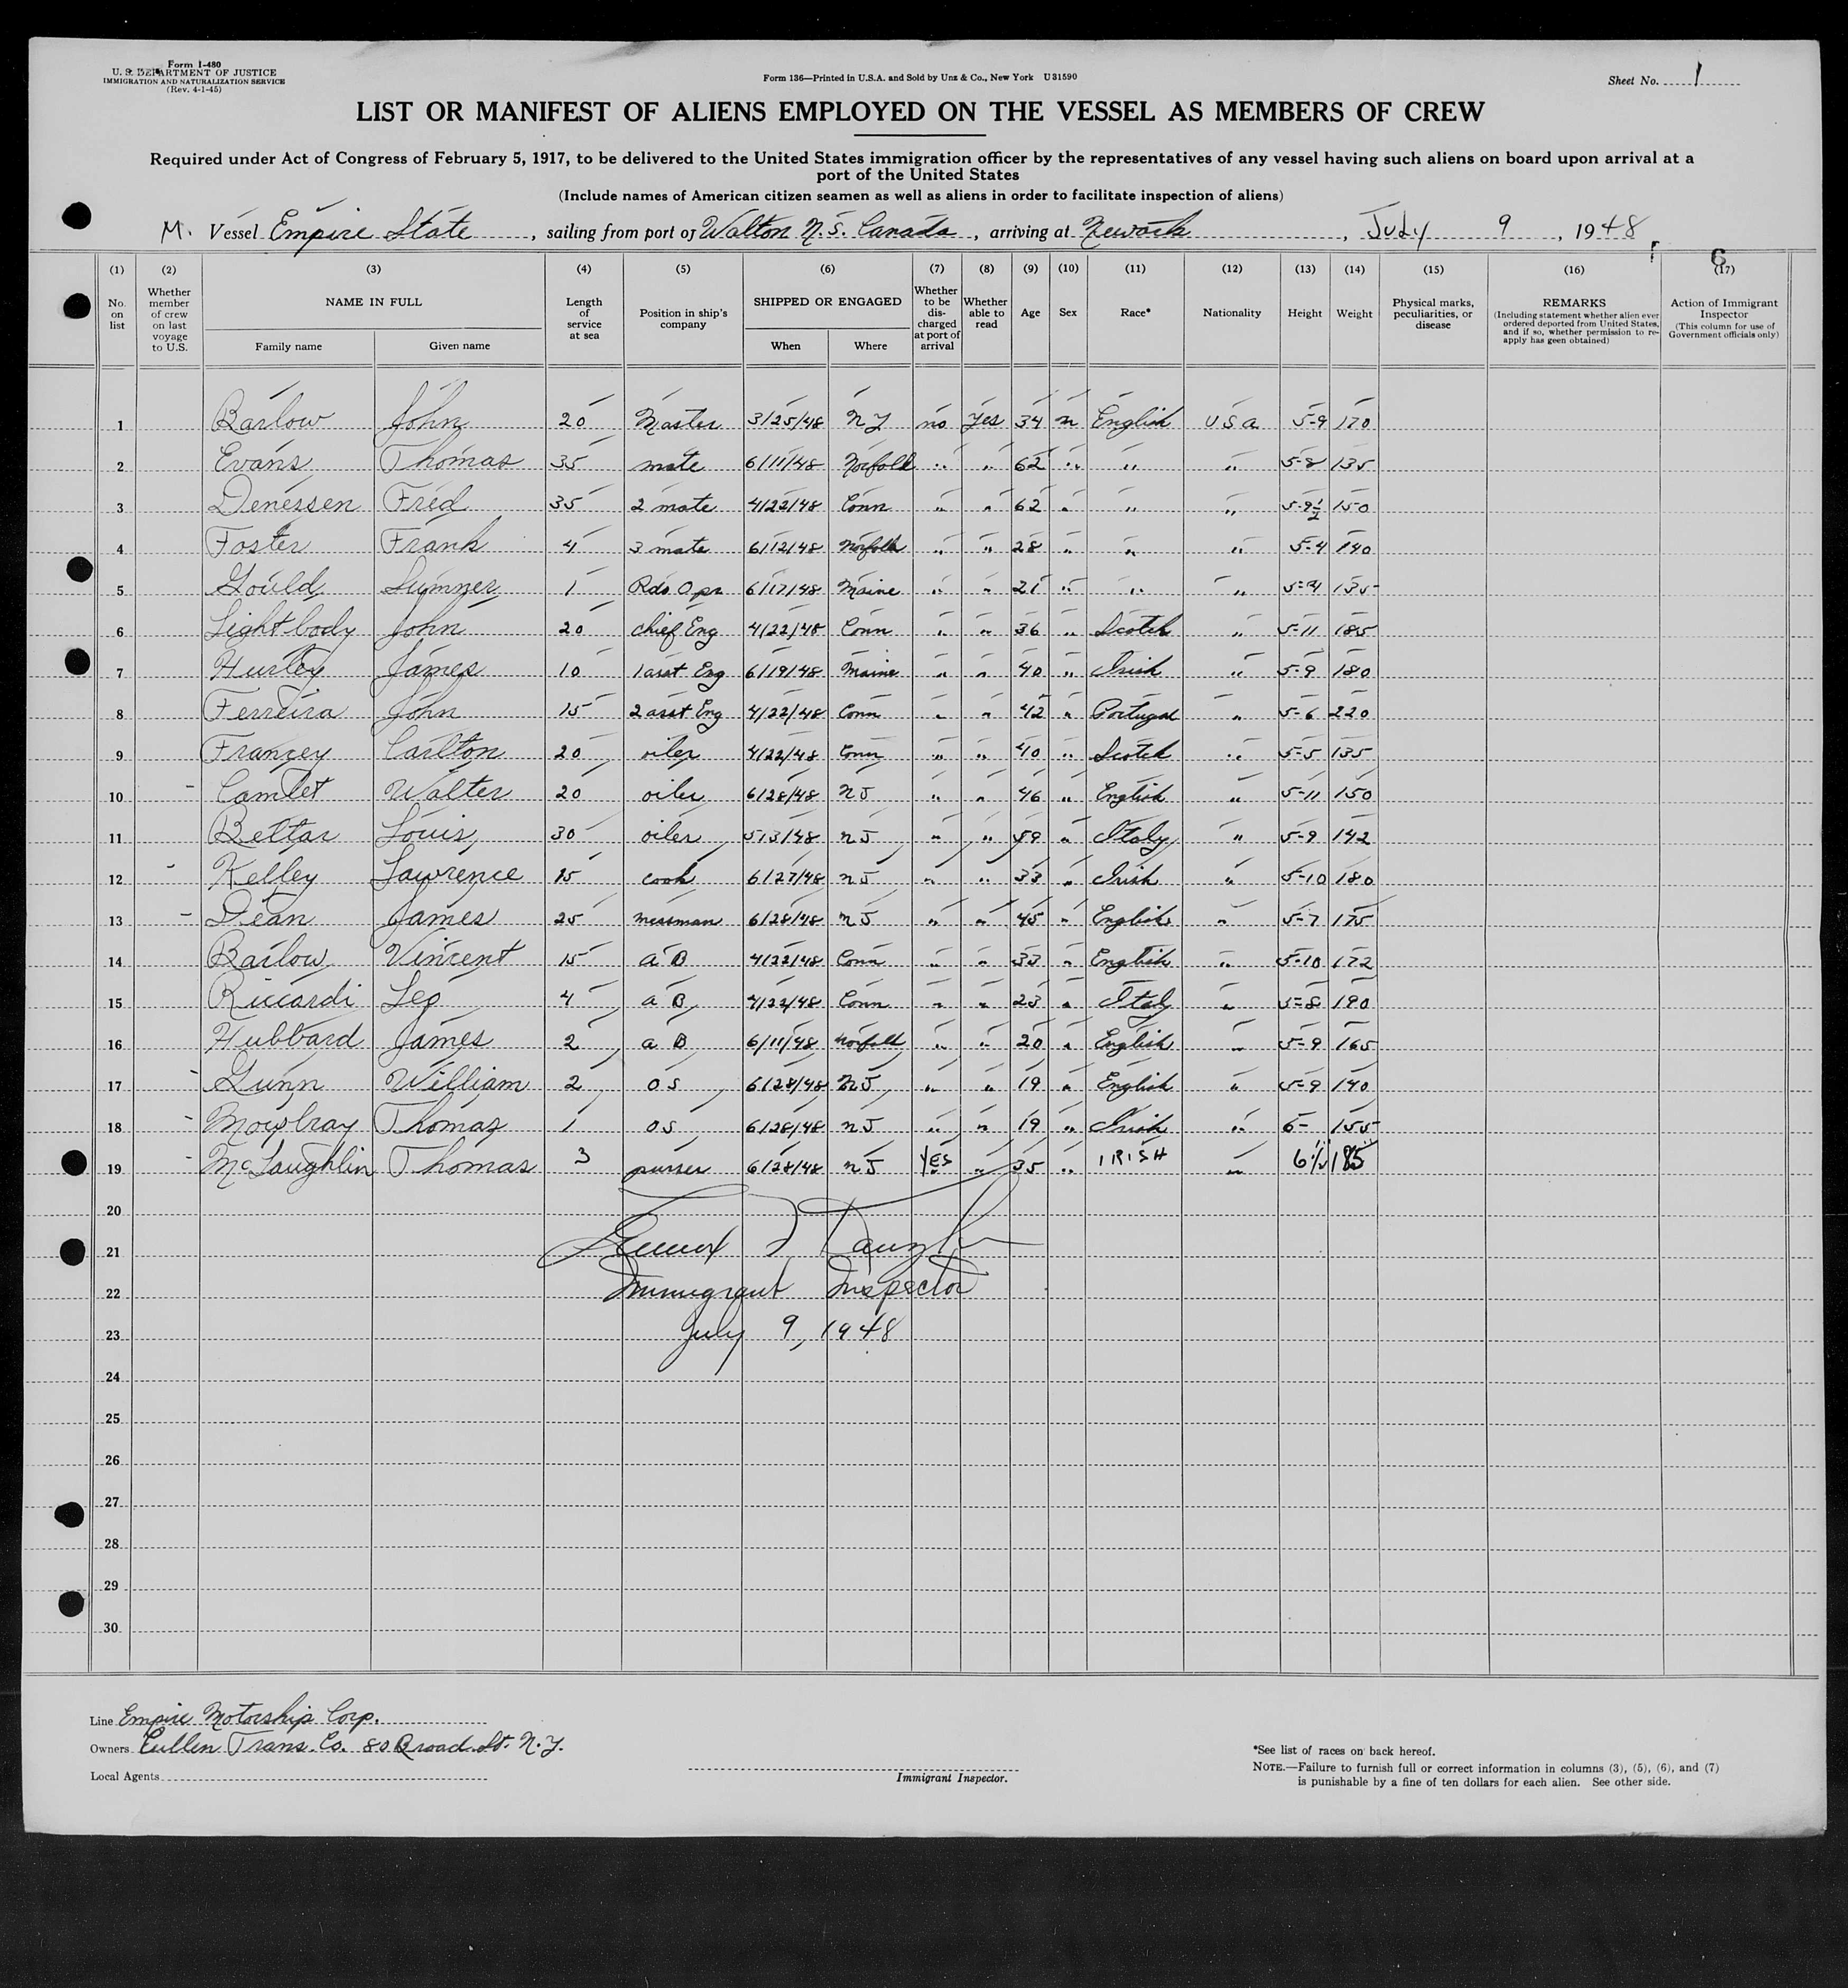 Form I-480
U. S. DEPARTMENT OF JUSTICE
IMMIGRATION AND NATURALIZATION SERVICE
(Rev. 4-1-45)
Form 136—Printed in U.S.A. and Sold by Unz & Co., New York U31590
Sheet No. 1
LIST OR MANIFEST OF ALIENS EMPLOYED ON THE VESSEL AS MEMBERS OF CREW
Required under Act of Congress of February 5, 1917, to be delivered to the United States immigration officer by the representatives of any vessel having such aliens on board upon arrival at a
port of the United States
(Include names of American citizen seamen as well as aliens in order to facilitate inspection of aliens)
M. Vessel Empire State, sailing from port of Walton N.S. Canada, arriving at Newark, July 9, 1948
6
(1) (2) (3) (4) (5) (6) (7) (8) (9) (10) (11) (12) (13) (14) (15) (16) (17)
No. on list
Whether member of crew on last voyage to U.S.
NAME IN FULL
Family name
Given name
Length of service at sea
Position in ship's company
SHIPPED OR ENGAGED
When
Where
Whether to be dis-charged at port of arrival
Whether able to read
Age
Sex
Race*
Nationality
Height
Weight
Physical marks, peculiarities, or disease
REMARKS
(Including statement whether alien ever ordered deported from United States, and if so, whether permission to re-apply has geen obtained)
Action of Immigrant Inspector
(This column for use of Government officials only)
1 Barlow John 20 Master 3/25/48 NY no Yes 34 m English USA 5-9 170
2 Evans Thomas 35 mate 6/11/48 Norfolk " " 62 " " " 5-8 135
3 Denessen Fred 35 2 mate 4/22/48 Conn " " 62 " " " 5-9½ 150
4 Foster Frank 4 3 mate 6/12/48 Norfolk " " 28 " " " 5-4 140
5 Gould Sumner 1 Rdo Opr 6/17/48 Maine " " 21 " " " 5-4 135
6 Lightbody John 20 chief Eng 4/22/48 Conn " " 36 " Scotch " 5-11 185
7 Hurley James 10 1 asst Eng 6/19/48 Maine " " 40 " Irish " 5-9 180
8 Ferreira John 15 2 asst Eng 4/22/48 Conn " " 42 " Portugal " 5-6 220
9 Francey Carlton 20 oiler 4/22/48 Conn " " 40 " Scotch " 5-5 135
10 Camlet Walter 20 oiler 6/28/48 NJ " " 46 " English " 5-11 150
11 Beltar Louis 30 oiler 5/3/48 NJ " " 59 " Italy " 5-9 142
12 Kelley Lawrence 15 cook 6/27/48 NJ " " 33 " Irish " 5-10 180
13 Dean James 25 messman 6/28/48 NJ " " 45 " English " 5-7 175
14 Barlow Vincent 15 A B 4/22/48 Conn " " 33 " English " 5-10 172
15 Riccardi Leo 4 A B 4/22/48 Conn " " 23 " Italy " 5-8 190
16 Hubbard James 2 A B 6/11/48 Norfolk " " 20 " English " 5-9 165
17 Gunn William 2 OS 6/28/48 NJ " " 19 " English " 5-9 140
18 Mowbray Thomas 1 OS 6/28/48 NJ " " 19 " Irish " 6- 155
19 McLaughlin Thomas 3 purser 6/28/48 NJ Yes " 35 " IRISH " 6½ 185
20
21
Immigrant Inspector
22
July 9, 1948
23
24
25
26
27
28
29
30
Line Empire Motorship Corp.
Owners Cullen Trans. Co. 80 Broad St. N.Y.
Local Agents
Immigrant Inspector.
*See list of races on back hereof.
NOTE.—Failure to furnish full or correct information in columns (3), (5), (6), and (7)
is punishable by a fine of ten dollars for each alien. See other side.